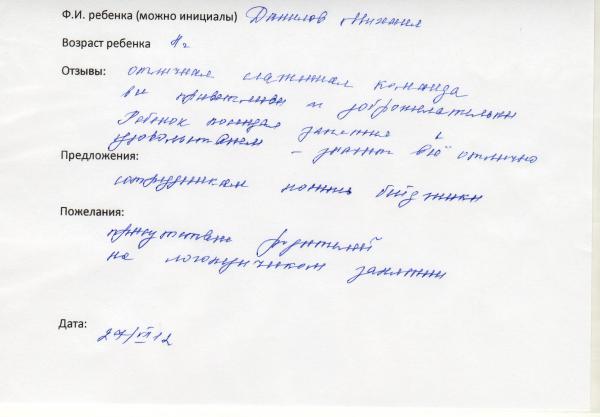 Ф.И. ребенка (можно инициалы) Данилов Михаил
Возраст ребенка 4г
Отзывы: отличная слаженная команда
все приветливы и доброжелательны
Ребенок посещал занятия с
удовольствием – значит всё отлично
Предложения:
сотрудникам носить бейджики
Пожелания:
присутствие родителей
на логопедическом занятии
Дата: 27/VII 12